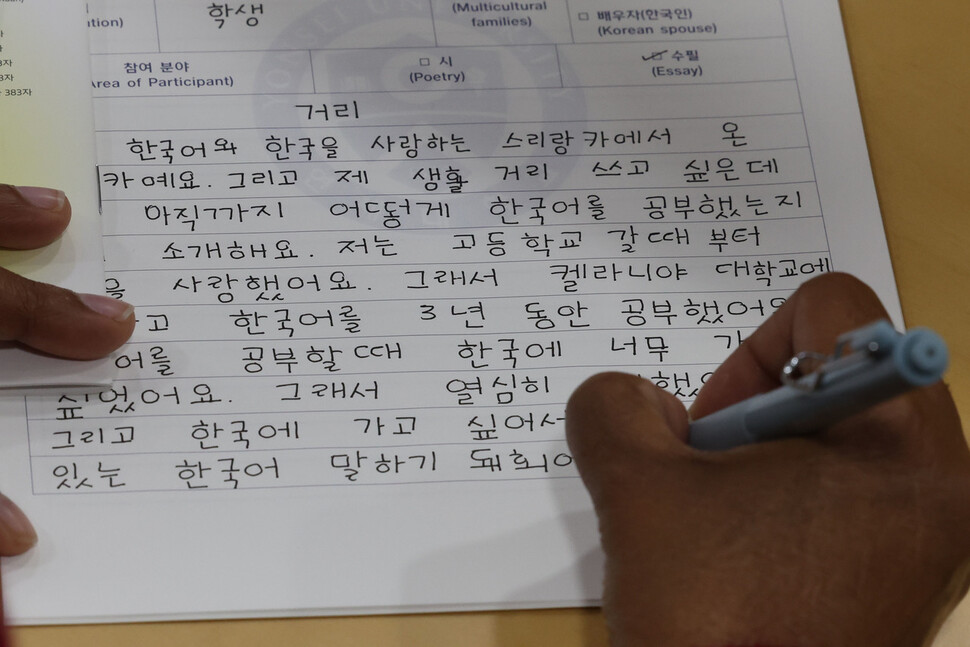 383자
학생
(Multicultural families)
□ 배우자(한국인)
(Korean spouse)
참여 분야
Area of Participant)
□ 시
(Poetry)
수필
(Essay)
거리
한국어와 한국을 사랑하는 스리랑카에서 온
카예요. 그리고 제 생활 거리 쓰고 싶은데
아직까지 어떻게 한국어를 공부했는지
소개해요. 저는 고등학교 갈때 부터
을 사랑했어요. 그래서 켈라니야 대학교에
고 한국어를 3년 동안 공부했어요
어를 공부할때 한국에 너무 가
싶었어요. 그래서 열심히 했
그리고 한국에 가고 싶어서
있는 한국어 말하기 돼회